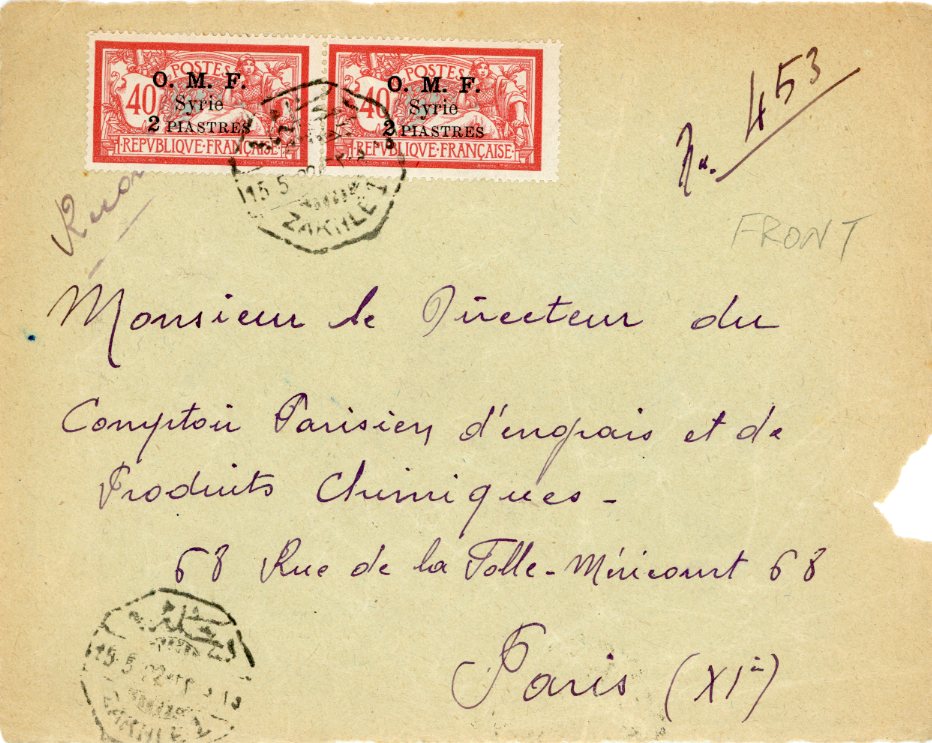 POSTES POSTES
40 O. M. F. 40 O. M. F.
Syrie Syrie
2 PIASTRES 2 PIASTRES
REPVBLIQUE·FRANÇAISE REPVBLIQUE·FRANÇAISE
15 5 22
ZAKHLE 2
No. 453
FRONT
Monsieur le Directeur du
Comptoir Parisien d'engrais et de
Produits Chimiques -
68 Rue de la Folle-Méricourt 68
Paris (XIè)
15·5·22
ZAKHLE 2